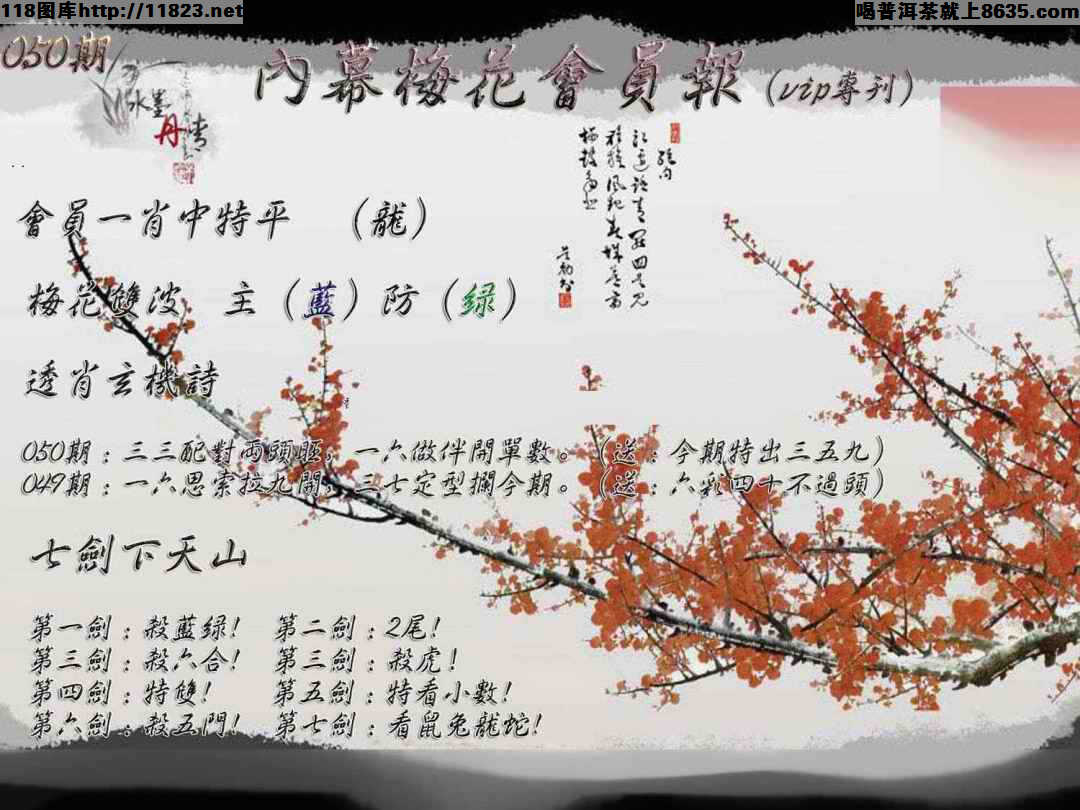 118图库http://11823.net
喝普洱茶就上8635.com
050期
內幕梅花會員報(vip專刊)
水墨
丹青
會員一肖中特平 (龍)
梅花雙波 主(藍)防(綠)
透肖玄機詩
050期:三三配對両頭旺,一六做伴開單數。(送:今期特出三五九)
049期:一六思索拉九開,三七定型攔今期。(送:六彩四十不過頭)
七劍下天山
第一劍:殺藍綠! 第二劍:2尾!
第三劍:殺六合! 第三劍:殺虎!
第四劍:特雙! 第五劍:特看小數!
第六劍:殺五門! 第七劍:看鼠兔龍蛇!